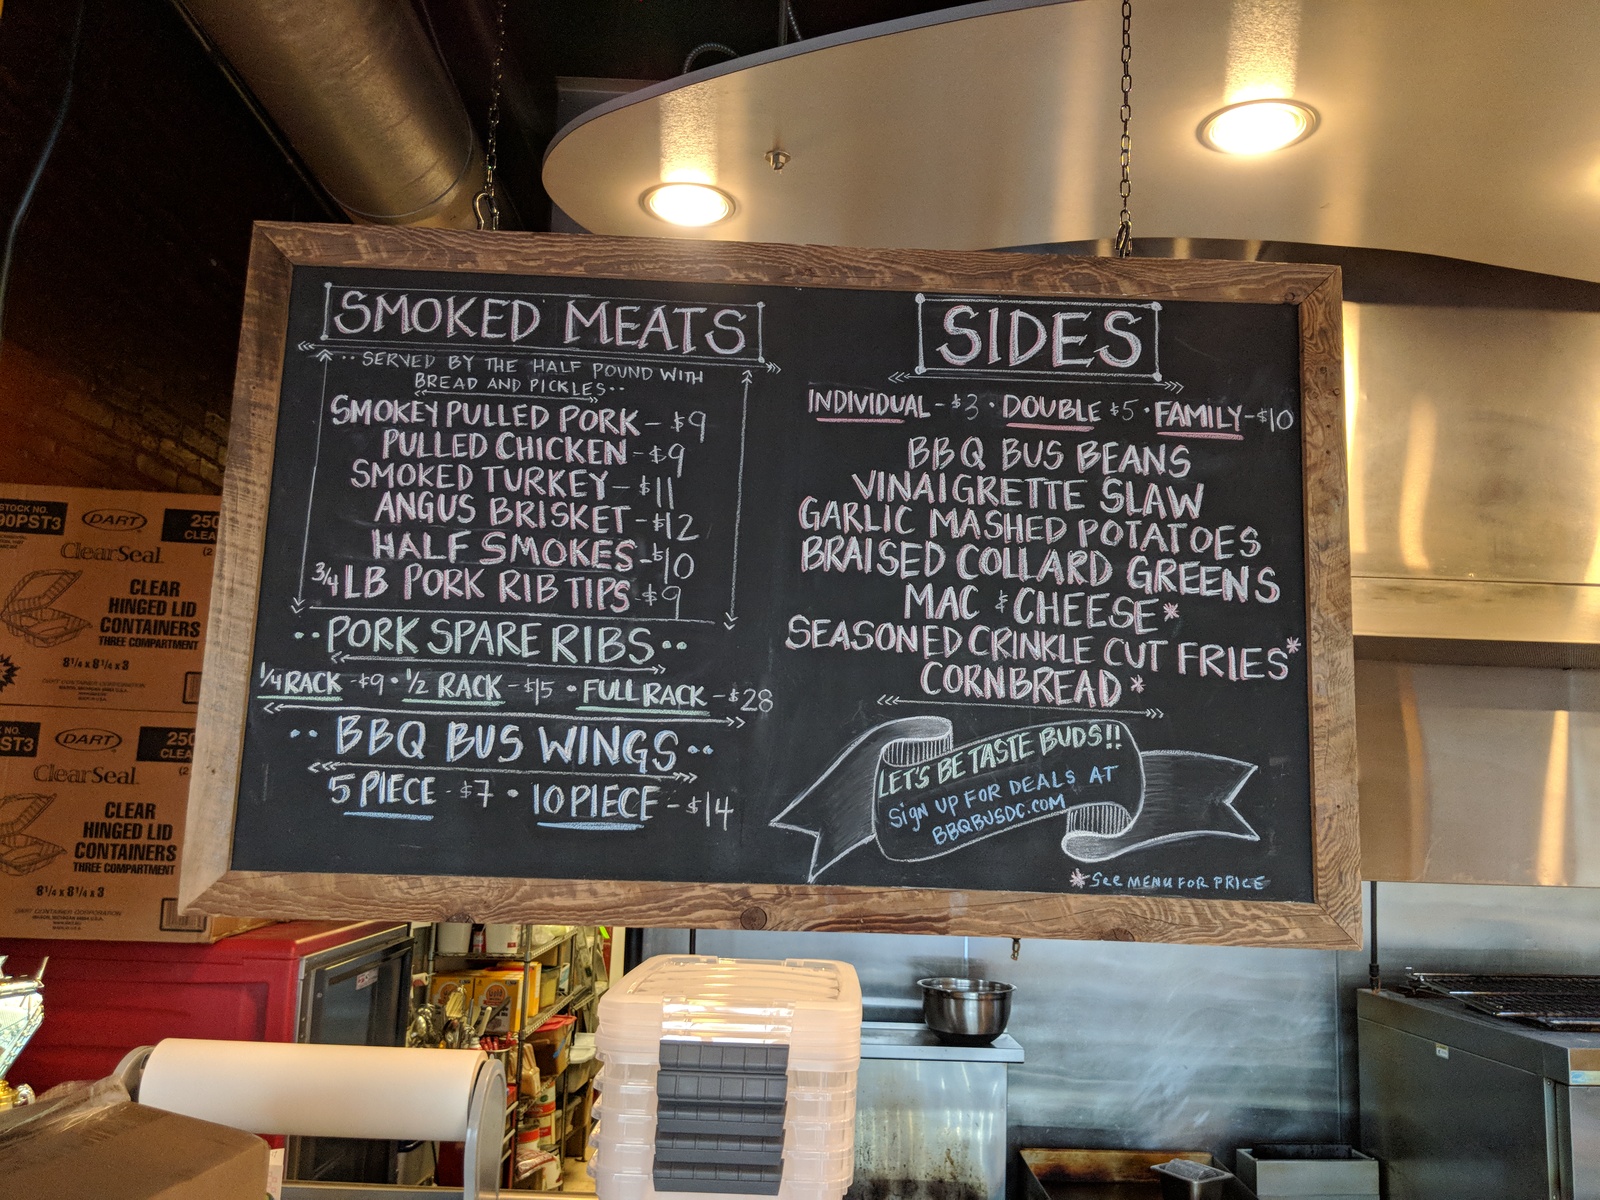 SMOKED MEATS
··SERVED BY THE HALF POUND WITH
BREAD AND PICKLES··
SMOKEY PULLED PORK - $9
PULLED CHICKEN - $9
SMOKED TURKEY - $11
ANGUS BRISKET - $12
HALF SMOKES - $10
3/4 LB PORK RIB TIPS - $9
··PORK SPARE RIBS··
1/4 RACK - $9 · 1/2 RACK - $15 · FULL RACK - $28
··BBQ BUS WINGS··
5 PIECE - $7 · 10 PIECE - $14
SIDES
INDIVIDUAL - $3 · DOUBLE $5 · FAMILY - $10
BBQ BUS BEANS
VINAIGRETTE SLAW
GARLIC MASHED POTATOES
BRAISED COLLARD GREENS
MAC & CHEESE*
SEASONED CRINKLE CUT FRIES*
CORNBREAD*
LET'S BE TASTE BUDS!!
SIGN UP FOR DEALS AT
BBQBUSDC.COM
*SEE MENU FOR PRICE
STOCK NO.
90PST3
DART
250
CLEA
ClearSeal
CLEAR
HINGED LID
CONTAINERS
THREE COMPARTMENT
8 1/4 x 8 1/4 x 3
DART CONTAINER CORPORATION
ST3
DART
250
CLEA
ClearSeal
CLEAR
HINGED LID
CONTAINERS
THREE COMPARTMENT
8 1/4 x 8 1/4 x 3
DART CONTAINER CORPORATION